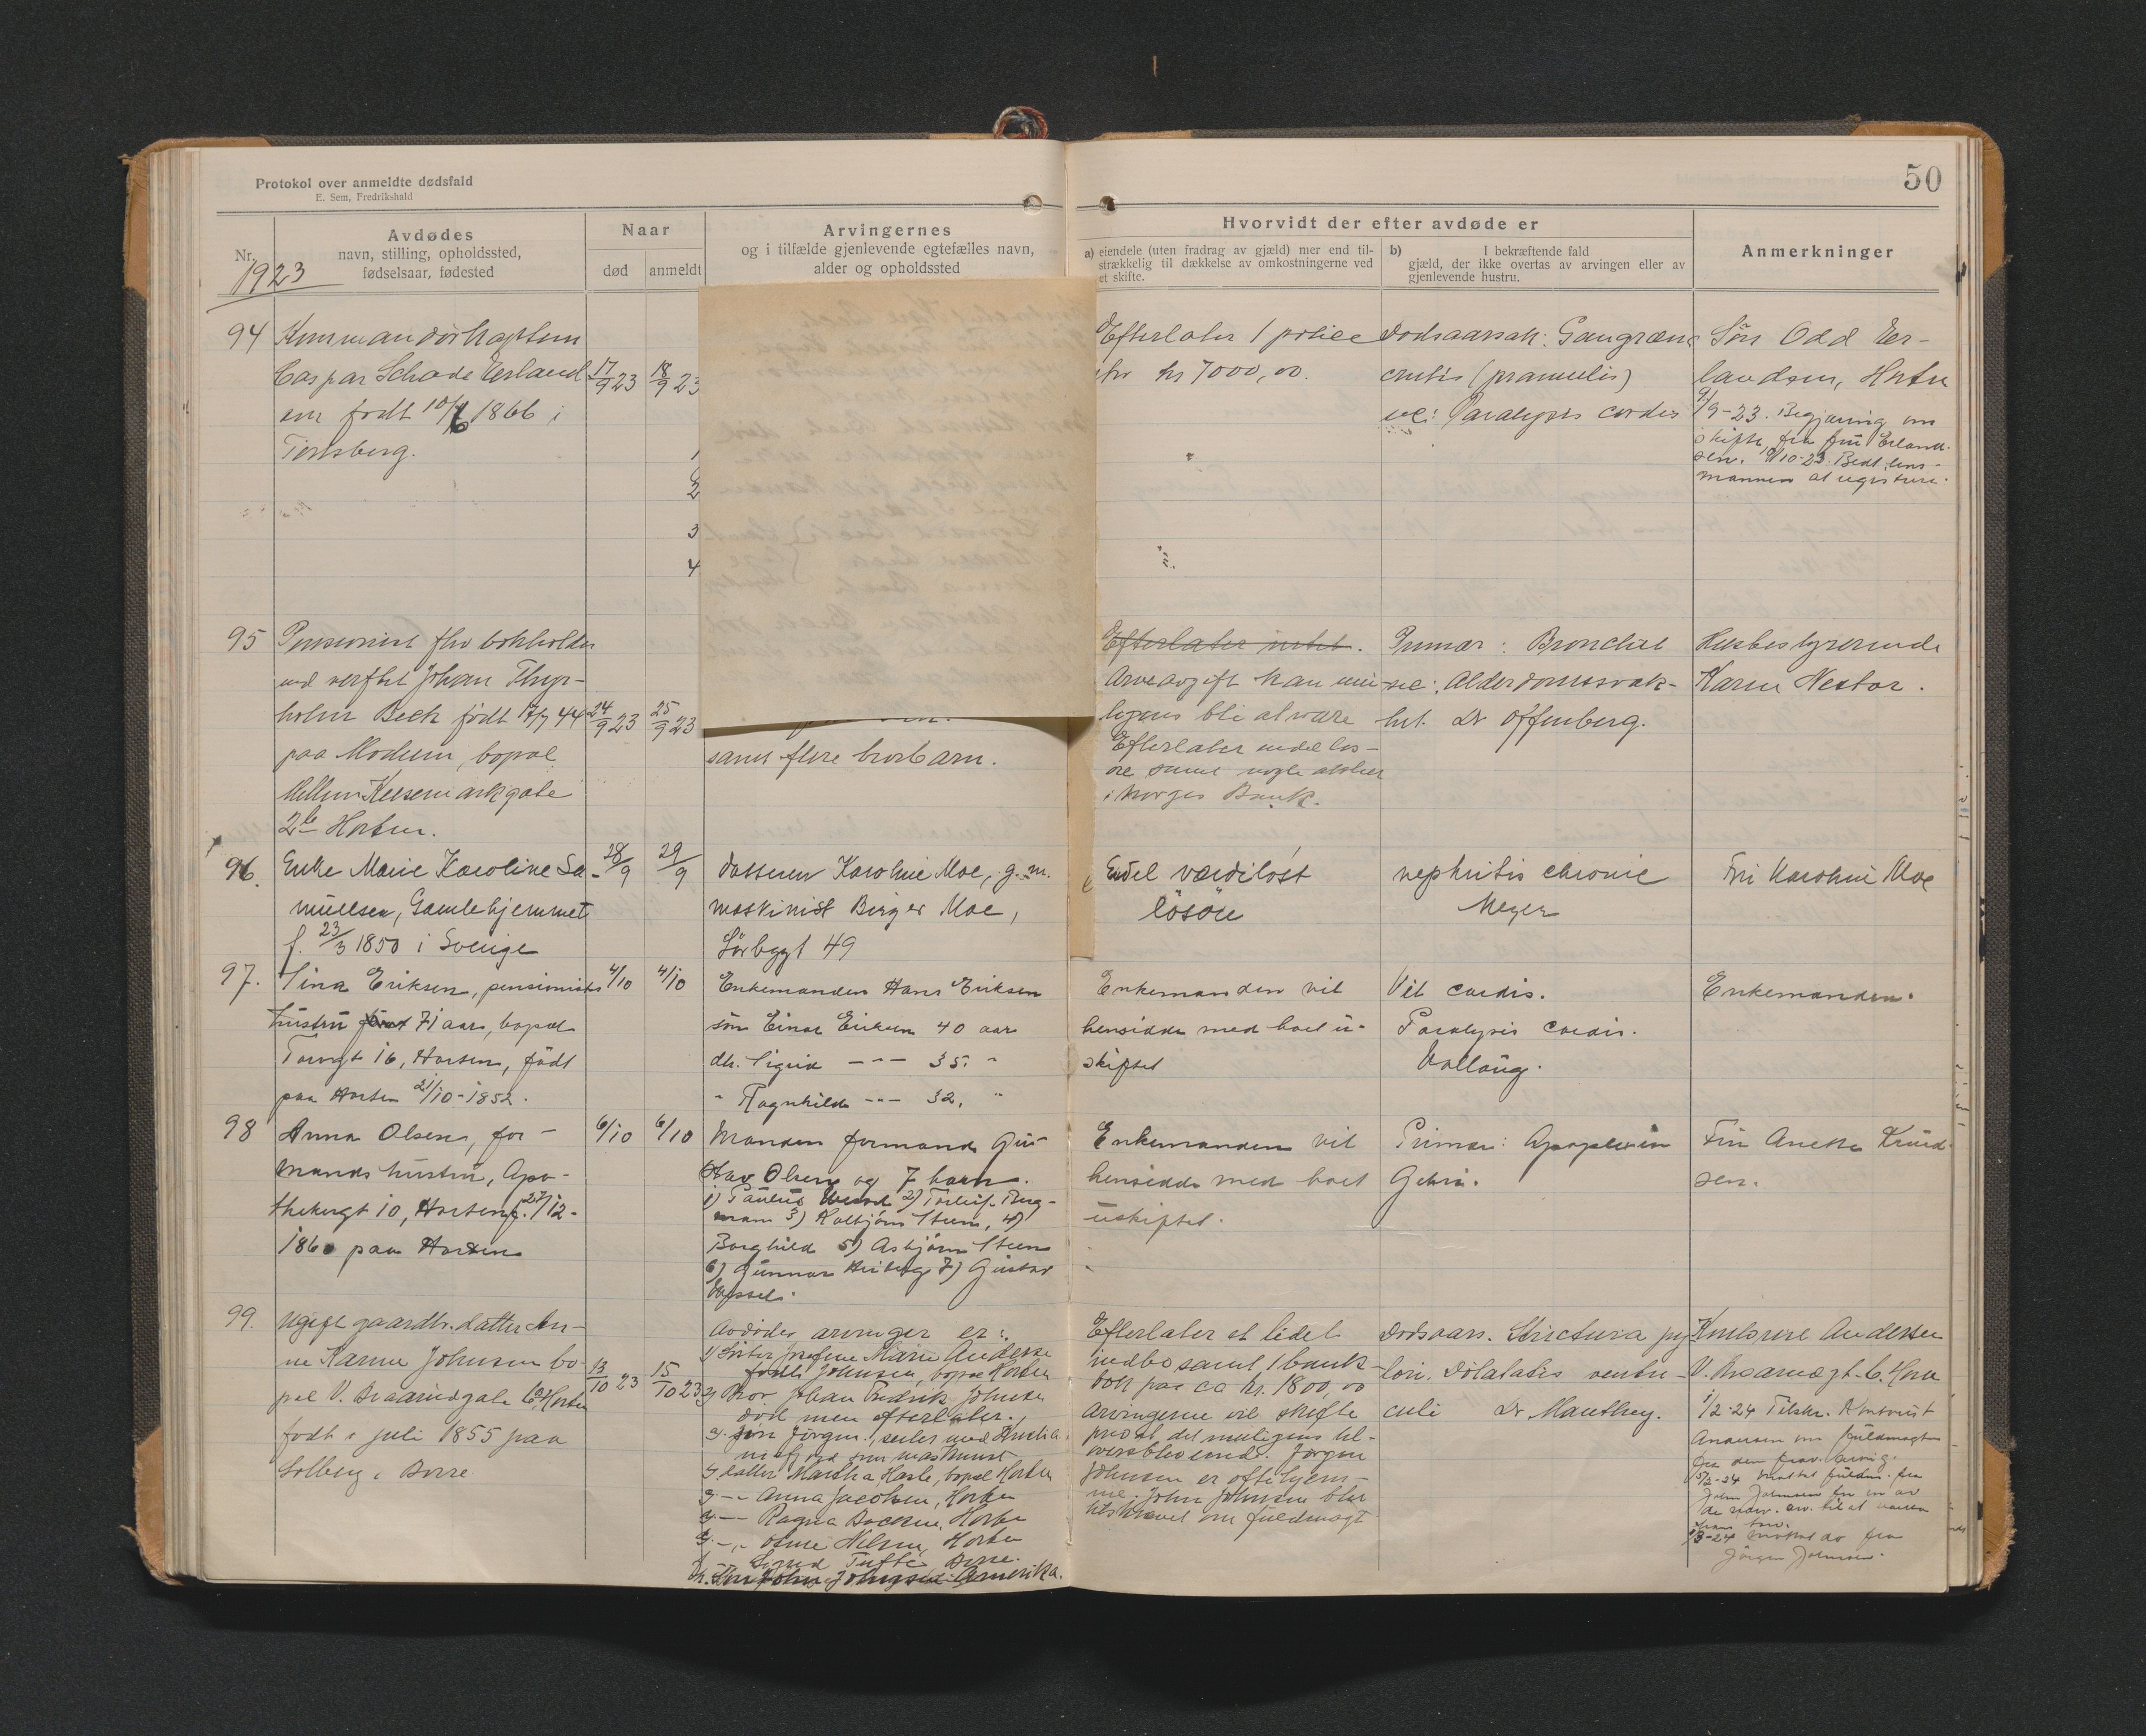 Protokol over anmeldte dødsfald
E. Sem, Fredrikshald
50
Nr.
1923
Avdødes
navn, stilling, opholdssted,
fødselsaar, fødested
Naar
død
anmeldt
Arvingernes
og i tilfælde gjenlevende egtefælles navn,
alder og opholdssted
Hvorvidt der efter avdøde er
a) eiendele (uten fradrag av gjæld) mer end til-
strækkelig til dækkelse av omkostningerne ved
et skifte.
b) I bekræftende fald
gjæld, der ikke overtas av arvingen eller av
gjenlevende hustru.
Anmerkninger
94
Kommandörkaptein
Caspar Schade Erland-
sen født 10/6 1866 i
Tønsberg.
17/9 23
18/9 23
2
3
4
Efterlater 1 police
kr 7000,00.
Dødsaarsak: Gangræna
cruris
sec: Paralysis cordis
Søn Odd Er-
landsen, Horten
/9-23. Begjæring om
skifte fra fru Erland-
sen. /10-23. Bedt lens-
manden at registrere.
95
Pensionist fhv bokholder
ved verftet Johan
holm Beck født 17/7 44
paa Modum, bopæl
gate
2b Horten.
24/9 23
25/9 23
samt flere brorbarn.
Efterlater intet.
Arveavgift kan mu-
ligens bli at svare
Efterlater endel løs-
øre samt nogle aktier
i Norges Bank.
Primær: Bronchit
sec: Alderdomssvak-
het. Dr Offenberg.
Husbestyrerinde
Karen Nestor.
96.
Enke Marie Karoline Sa-
muelsen, Gamlehjemmet
f. 23/3 1850 i Sverige
28/9
29/9
Datteren Karoline Moe, g.m.
maskinist Birger Moe,
Sørbygt 49
Endel værdiløst
løsøre
nephritis chronic
Meyer
Fru Karoline Moe
97.
Sina Eriksen, pensionists
hustru født 71 aar, bopæl
Torvgt 16, Horten, født
paa Horten 21/10-1852.
4/10
4/10
Enkemanden Hans Eriksen
søn Einar Eriksen 40 aar
dtr. Sigrid -"- 35. "
" Ragnhild -"- 32. "
Enkemanden vil
hensidde med boet u-
skiftet
Vit cordis.
Paralysis cordis.
Enkemanden.
98
Anna Olsen, for-
mands hustru, Apo-
thekergt 10, Horten f. 27/12-
1860 paa Horten
6/10
6/10
Manden formand Gus-
tav Olsen og 7 barn.
1) Paulus 2) Torleif Berg-
mann 3) Kolbjørn Steen, 4)
Borghild 5) Asbjørn Steen
6) Gunnar 7) Gustav
Enkemanden vil
hensidde med boet
uskiftet.
Primær: Apoplexia
Fru Anette Knud-
sen.
99.
Ugift gaardbr. datter An-
ne Karine Johnsen bo-
pæl V. Braarudgate 6, Horten
født i juli 1855 paa
Solberg i Borre
13/10 23
15/10 23
Avdødes arvinger er:
1) Søster Josefine Marie Andersen
født Johnsen, bopæl Horten
2) Bror Johan Fredrik Johnsen
død men efterlater:
søn Jørgen, seiler med Kristia-
niafjord som maskinist
datter Martha Hasle, bopæl Horten
-"- Anna Jacobsen, Horten
-"- Ragna Horten
-"- Nilsen, Horten
Sigrid Tufte Borre.
Søn John Johnsen Amerika.
Efterlater et lidet
indbo samt 1 bank-
bok paa ca kr. 1800,00
Arvingerne vil skifte
privat det muligens til-
oversblevende. Jørgen
Johnsen er ofte hjem-
me. John Johnsen blir
tilskrevet om fuldmagt
Dødsaars. Strictura py-
lori. Dilatatis ventri-
culi Dr Manthey.
Andersen
V. Braarudgt. 6. Horten
1/2-24 Tilskr.
Andersen om fuldmagt
fra den frav. arving.
15/2-24 mottat fuldm. fra
John Johnsen
Jørgen Johnsen.